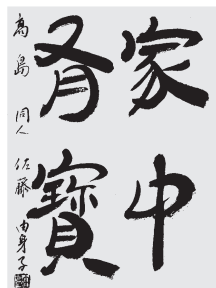 家中
有寶
高島 同人 佐藤 由身子